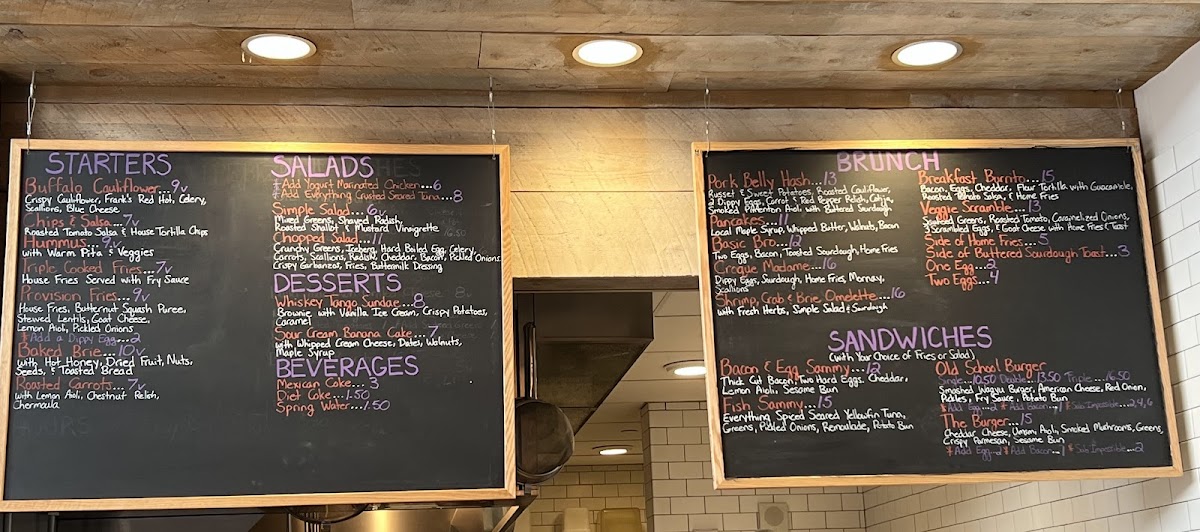 STARTERS
Buffalo Cauliflower...9v
Crispy Cauliflower, Frank's Red Hot, Celery,
Scallions, Blue Cheese
Chips & Salsa...7v
Roasted Tomato Salsa & House Tortilla Chips
Hummus...9v
with Warm Pita & Veggies
Triple Cooked Fries...7v
House Fries Served with Fry Sauce
Provision Fries...9v
House Fries, Butternut Squash Puree,
Stewed Lentils, Goat Cheese,
Lemon Aioli, Pickled Onions
*Add a Dippy Egg...2
Baked Brie...10v
with Hot Honey, Dried Fruit, Nuts,
Seeds, & Toasted Bread
Roasted Carrots...7v
with Lemon Aioli, Chestnut Relish,
Chermoula
SALADS
*Add Yogurt Marinated Chicken...6
*Add Everything Crusted Seared Tuna...8
Simple Salad...6v
Mixed Greens, Shaved Radish,
Roasted Shallot & Mustard Vinaigrette
Chopped Salad...11
Crunchy Greens, Iceberg, Hard Boiled Egg, Celery,
Carrots, Scallions, Radish, Cheddar, Bacon, Pickled Onions
Crispy Garbanzos, Fries, Buttermilk Dressing
DESSERTS
Whiskey Tango Sundae...8
Brownie with Vanilla Ice Cream, Crispy Potatoes,
Caramel
Sour Cream Banana Cake...7
with Whipped Cream Cheese, Dates, Walnuts,
Maple Syrup
BEVERAGES
Mexican Coke...3
Diet Coke...1.50
Spring Water...1.50
BRUNCH
Pork Belly Hash...13
Russet & Sweet Potatoes, Roasted Cauliflower,
2 Dippy Eggs, Carrot & Red Pepper Relish, Cotija,
Smoked Pimenton Aioli with Buttered Sourdough
Pancakes...
Local Maple Syrup, Whipped Butter, Walnuts, Bacon
Basic Bro...12
Two Eggs, Bacon, Toasted Sourdough, Home Fries
Croque Madame...16
Dippy Eggs, Sourdough, Home Fries, Mornay,
Scallions
Shrimp, Crab & Brie Omelette...16
with Fresh Herbs, Simple Salad & Sourdough
Breakfast Burrito...15
Bacon, Eggs, Cheddar, Flour Tortilla with Guacamole,
Roasted Tomato Salsa, & Home Fries
Veggie Scramble...13
Sauteed Greens, Roasted Tomato, Caramelized Onions,
3 Scrambled Eggs, & Goat Cheese with Home Fries & Toast
Side of Home Fries...5
Side of Buttered Sourdough Toast...3
One Egg...2
Two Eggs...4
SANDWICHES
(with Your Choice of Fries or Salad)
Bacon & Egg Sammy...12
Thick Cut Bacon, Two Hard Eggs, Cheddar,
Lemon Aioli, Sesame Bun
Fish Sammy...15
Everything Spiced Seared Yellowfin Tuna,
Greens, Pickled Onions, Remoulade, Potato Bun
Old School Burger
Single...10.50 Double...13.50 Triple...16.50
Smashed Wagyu Burger, American Cheese, Red Onion,
Pickles, Fry Sauce, Potato Bun
*Add Egg...2 *Add Bacon.../ *Sub Impossible...2,4,6
The Burger...15
Cheddar Cheese, Umami Aioli, Smoked Mushrooms, Greens,
Crispy Parmesan, Sesame Bun
*Add Egg...2 *Add Bacon.../ *Sub Impossible...2